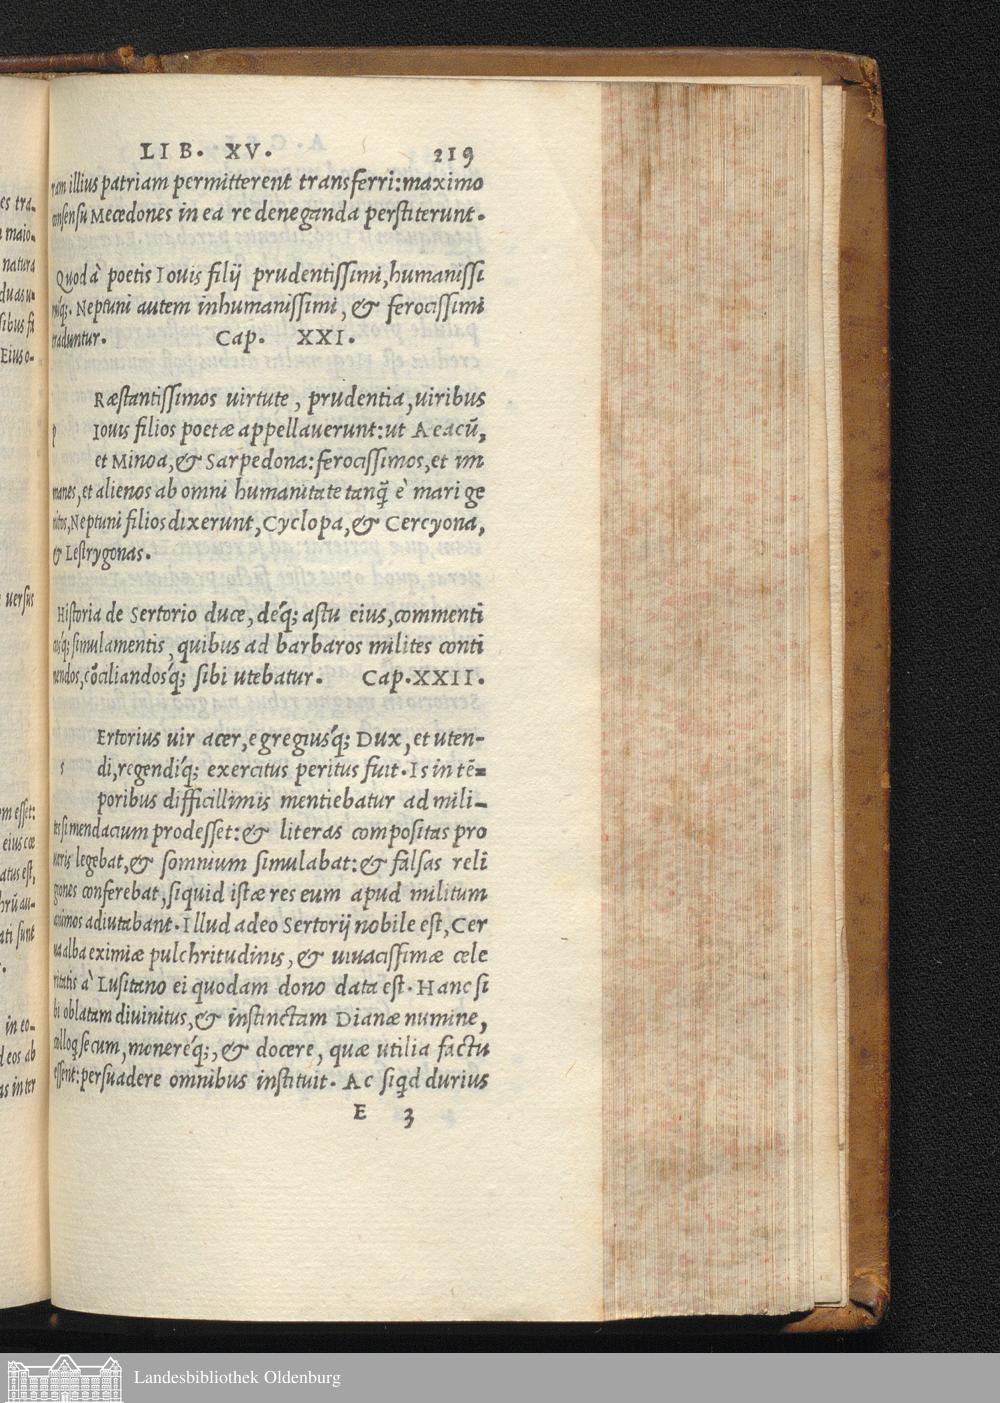 LIB. XV. 219
ram illius patriam permitterent transferri: maximo
consensu Mecedones in ea re deneganda perstiterunt.
Quod à poetis Iouis filij prudentissimi, humanissi
miq́;. Neptuni autem inhumanissimi, & ferocissimi
traduntur. Cap. XXI.
Ræstantissimos uirtute, prudentia, uiribus
p Iouis filios poetæ appellauerunt: ut Aeacū,
et Minoa, & Sarpedona: ferocissimos, et im
manes, et alienos ab omni humanitate tanq̃ è mari ge
nitos, Neptuni filios dixerunt, Cyclopa, & Cercyona,
& Lestrygonas.
Historia de Sertorio duce, deq́; astu eius, commenti
ciq́; simulamentis, quibus ad barbaros milites conti
nendos, cōciliandosq́; sibi utebatur. Cap. XXII.
Ertorius uir acer, egregiusq́; Dux, et uten-
s di, regendiq́; exercitus peritus fuit. Is in tē=
poribus difficillimis mentiebatur ad mili-
tes si mendacium prodesset: & literas compositas pro
ueris legebat, & somnium simulabat: & falsas reli
giones conferebat, siquid istæ res eum apud militum
animos adiutabant. Illud adeo Sertorij nobile est, Cer
ua alba eximiæ pulchritudinis, & uiuacissimæ cele
ritatis à Lusitano ei quodam dono data est. Hanc si
bi oblatam diuinitus, & instinctam Dianæ numine,
colloq̃ secum, monereq́;, & docere, quæ utilia factu
essent: persuadere omnibus instituit. Ac siq̃d durius
E 3
es tra-
maio-
natura
duas u-
sibus fi
Eius o-
uersus
om esset:
eius cœ
atus est,
hrū au-
ati sunt
in eo-
d eos ab
as inter
Landesbibliothek Oldenburg